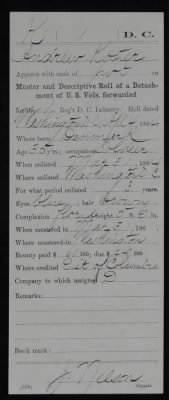 K | 1 | D. C.
Andrew
Appears with rank of Pvt on
Muster and Descriptive Roll of a Detach-
ment of U. S. Vols. forwarded
for Reg't D. C. Infantry. Roll dated
Washington D.C. 186
Where born Denmark
Age 35 y'rs; occupation
When enlisted Mar 3, 186
Where enlisted Washington D C
For what period enlisted 3 years.
Eyes Blue; hair Brown
Complexion height 5 ft. in.
When mustered in Mar 3, 186
Where mustered in Washington
Bounty paid $ 100; due $ 100
Where credited Dist of Columbia
Company to which assigned D
Remarks:
Book mark:
J Nelson
Copyist.